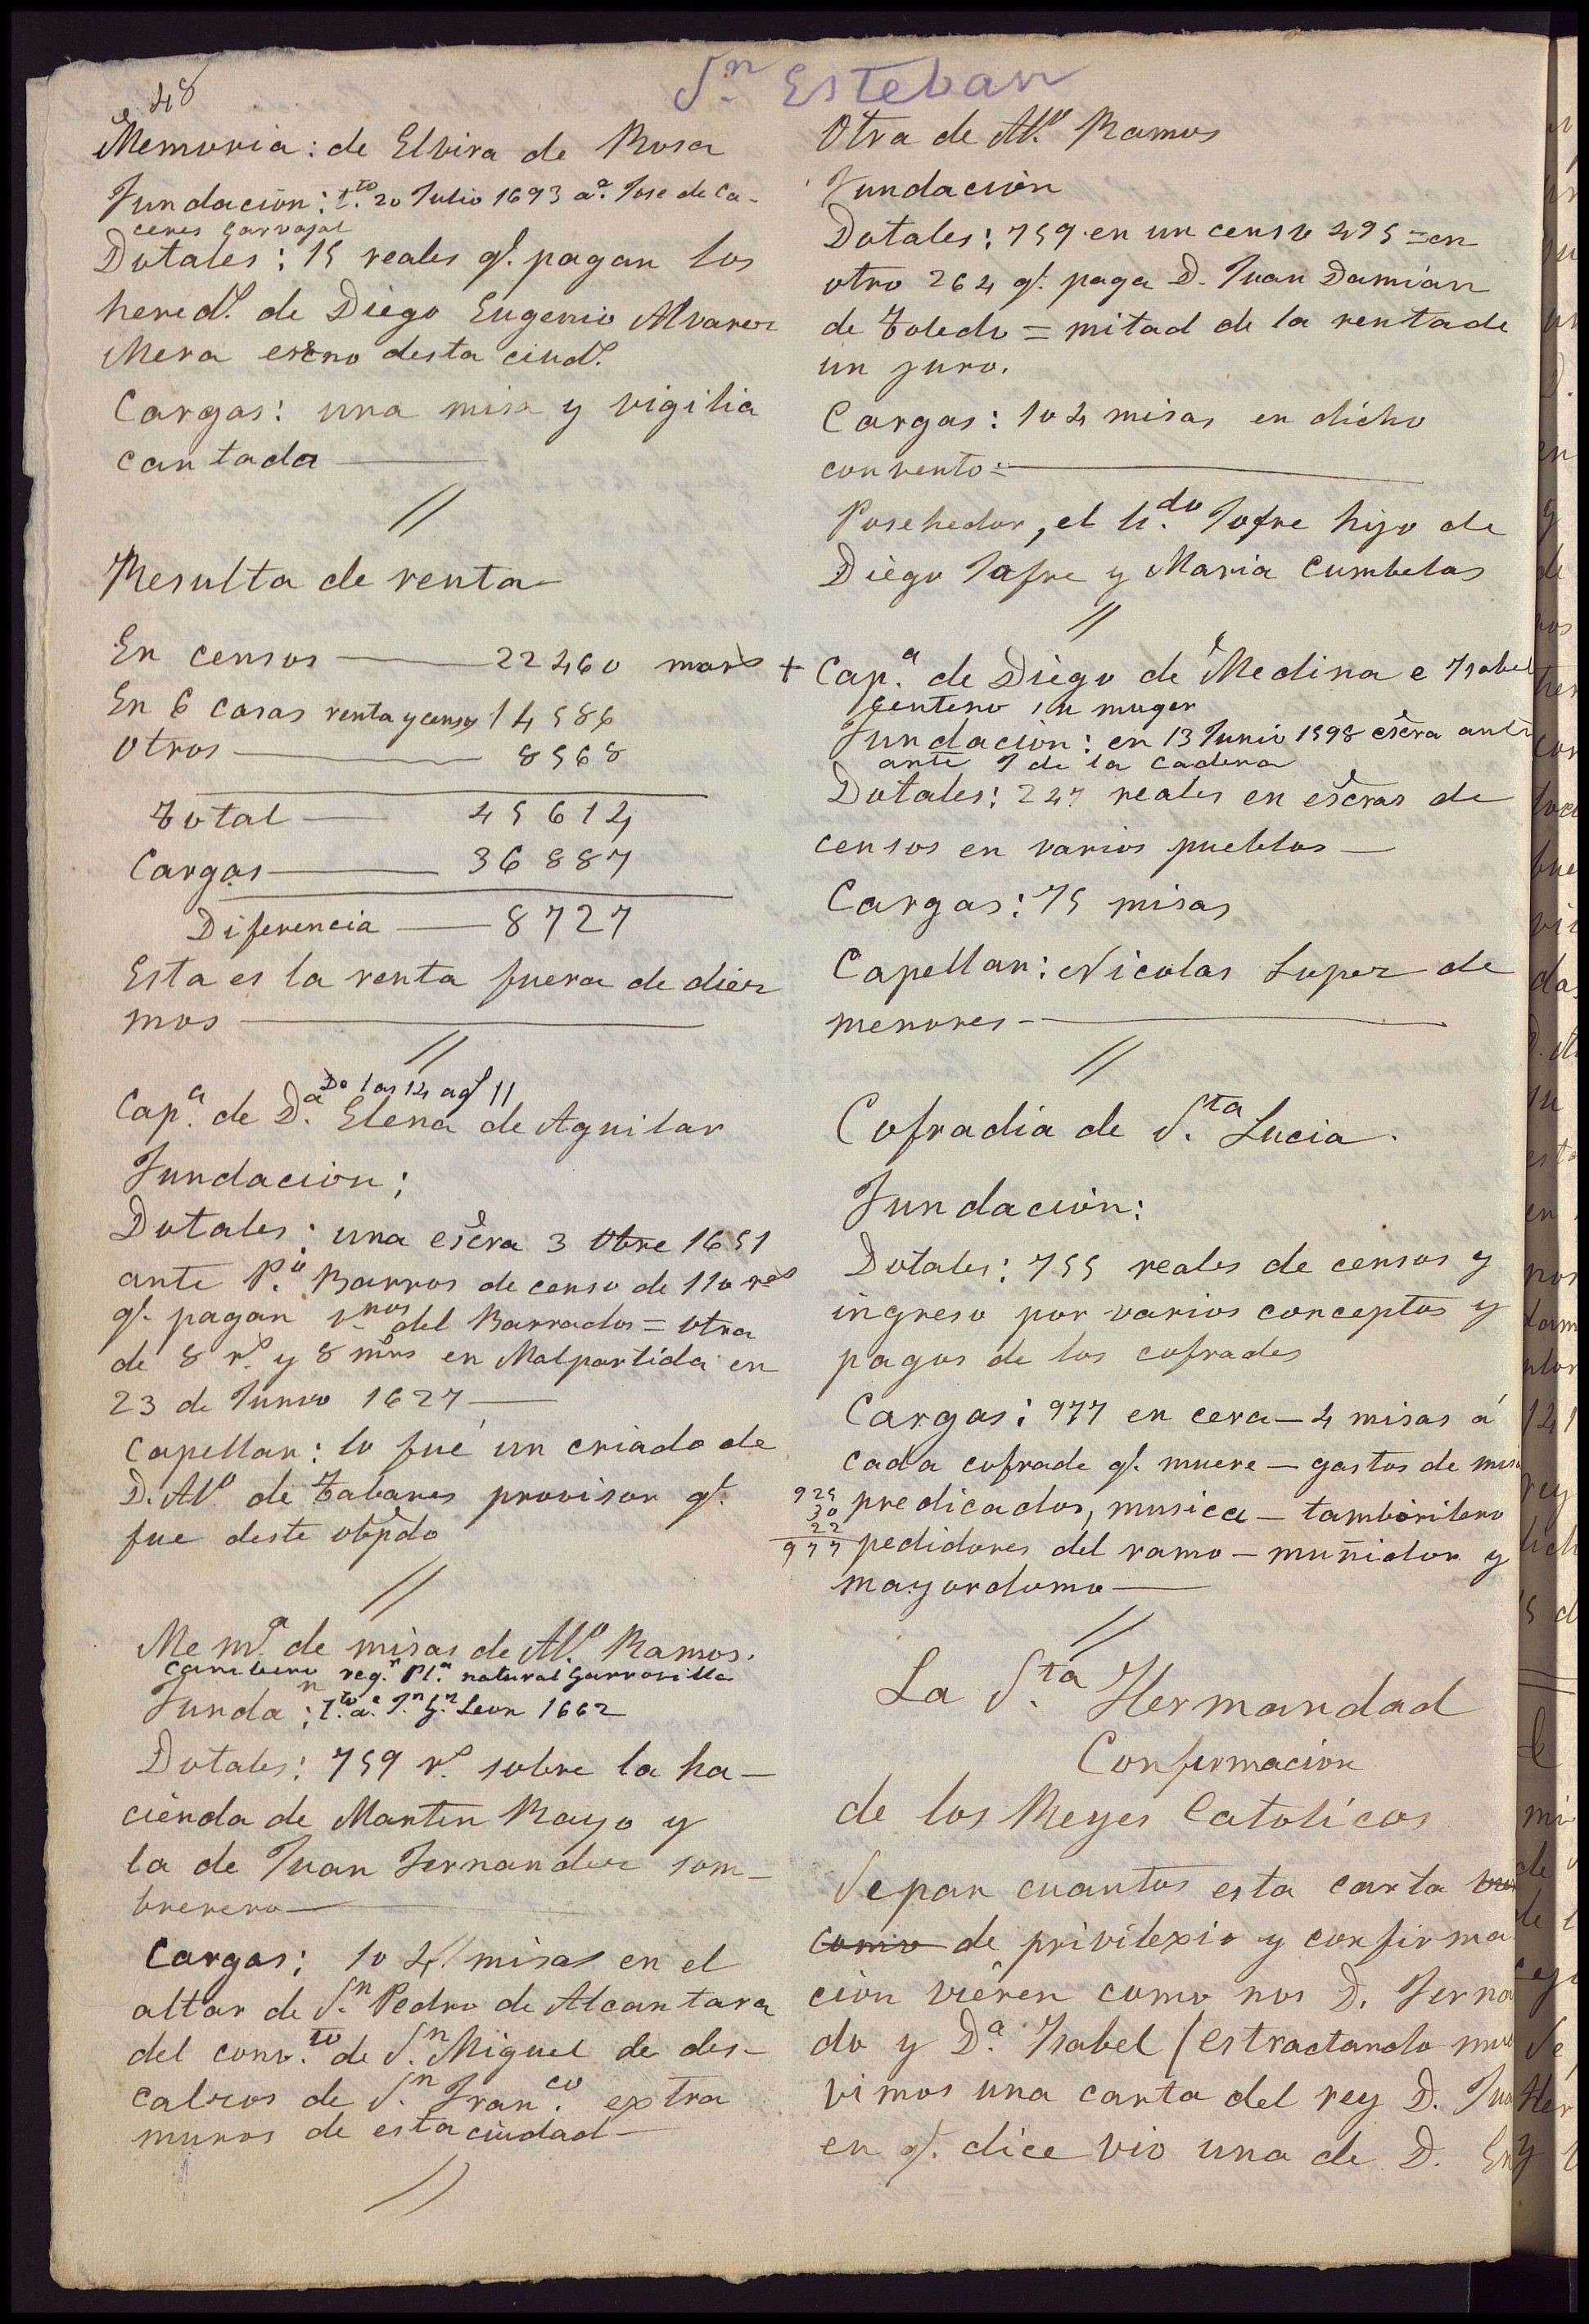 48
Sn. Esteban
Memoria: de Elvira de Rosa
Fundación: t.to 20 Julio 1693 a.e Jose de Ca-
ceres Carvajal
Dotales: 15 reales q. pagan los
hered.s de Diego Eugenio Alvarez
Mera escno desta ciud.
Cargas: una misa y vigilia
cantada
//
Resulta de renta
En censos 22460 mars
En 6 casas renta y censos 14586
Otros 8568
Total 45614
Cargas 36887
Diferencia 8727
Esta es la renta fuera de diez
mos
//
De las 14 ag. 11
Cap.a de D.a Elena de Aguilar
Fundación:
Dotales: una escra 3 Obre 1651
ante P.o Barros de censo de 110 rs
q. pagan v.nos del Barrado = otra
de 8 r.s y 8 mrs en Malpartida en
23 de Junio 1627
Capellan: lo fué un criado de
D. Al.o de Tabares provisor q.
fue deste obpdo
//
Mem.a de misas de Al.o Ramos.
reg.r Pl.a natural Garrovilla
Funda n: t.to a.e J.n G.n Leon 1662
Dotales: 759 r.s sobre la ha-
cienda de Martin Rayo y
la de Juan Fernandez som-
brerero
Cargas: 104 misas en el
altar de S.n Pedro de Alcantara
del conv.to de S.n Miguel de des-
calzos de S.n Fran.co extra
muros de esta ciudad
//
Otra de Al.o Ramos
Fundación
Dotales: 759 en un censo 495 = en
otro 264 q. paga D. Juan Damián
de Toledo = mitad de la renta de
un juro.
Cargas: 104 misas en dicho
convento =
Posehedor, el li.do Jofre hijo de
Diego Jofre y Maria Cumbelas
//
+ Cap.a de Diego de Medina e Isabel
Centeno su muger
Fundación: en 13 Junio 1598 escra ante
ante J de la Cadena
Dotales: 247 reales en escras de
censos en varios pueblos
Cargas: 75 misas
Capellan: Nicolas Lopez de
menores
//
Cofradia de S.ta Lucia.
Fundación:
Dotales: 755 reales de censos y
ingreso por varios conceptos y
pagos de los cofrades
Cargas: 977 en cera - 4 misas á
cada cofrade q. muere - gastos de misa
925 predicados, musica - tamborilero
30
22
977 pedidores del ramo - muñidor y
mayordomo
//
La S.ta Hermandad
Confirmación
de los Reyes Catolicos
Sepan cuantos esta carta
como de privilexio y confirma
ción vieren como nos D. Ferna
do y D.a Isabel (estractando
vimos una carta del rey D. Jua
en q. dice vio una de D. En